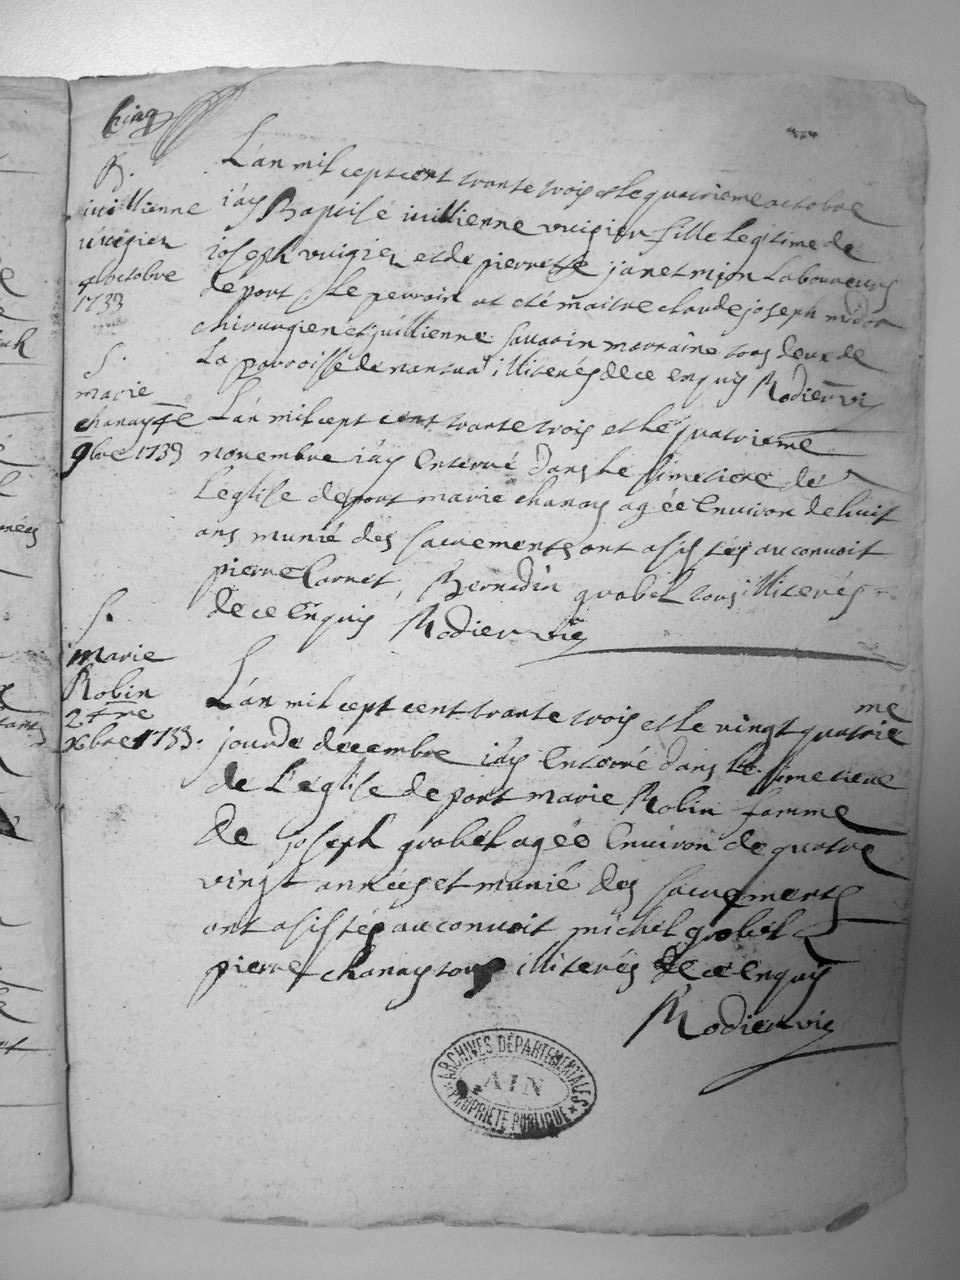 Cinq
B.
iuillienne
vuigier
4 octobre
1733
L'an mil cept cent trante trois et le quatrieme octobre
i'ay Baptisé iuillienne vuigier fille legitime de
ioseph vuigier et de pierrette janet mion laboureurs
de port le perrain at été maitre claude joseph
chirurgien et juillienne savarin marraine tous deux de
la parroisse de nantua illiterés de ce enquis Rodier vic
S.
marie
chanay 4e
9bre 1733
L'an mil cept cent trante trois et le quatrieme
novembre i'ay enterré dans le simetiere de
l'eglise de port marie chanay agée environ de huit
ans munié des sacrements ont asistés au convoit
pierre Carnet, Bernadin grobel tous illiterés
de ce enquis Rodier vic
S.
Marie
Robin
24me
xbre 1733.
L'an mil cept cent trante trois et le vingt quatrieme
jour de decembre i'ay enterré dans le simetiere
de l'eglise de port marie Robin famme
de joseph grobel agée environ de quatre
vingt années et munié des sacrements
ont asistés au convoit michel grobel
pierre chanay tous illiterés de ce enquis
Rodier vic
ARCHIVES DÉPARTEMENTALES
AIN
PROPRIÉTÉ PUBLIQUE